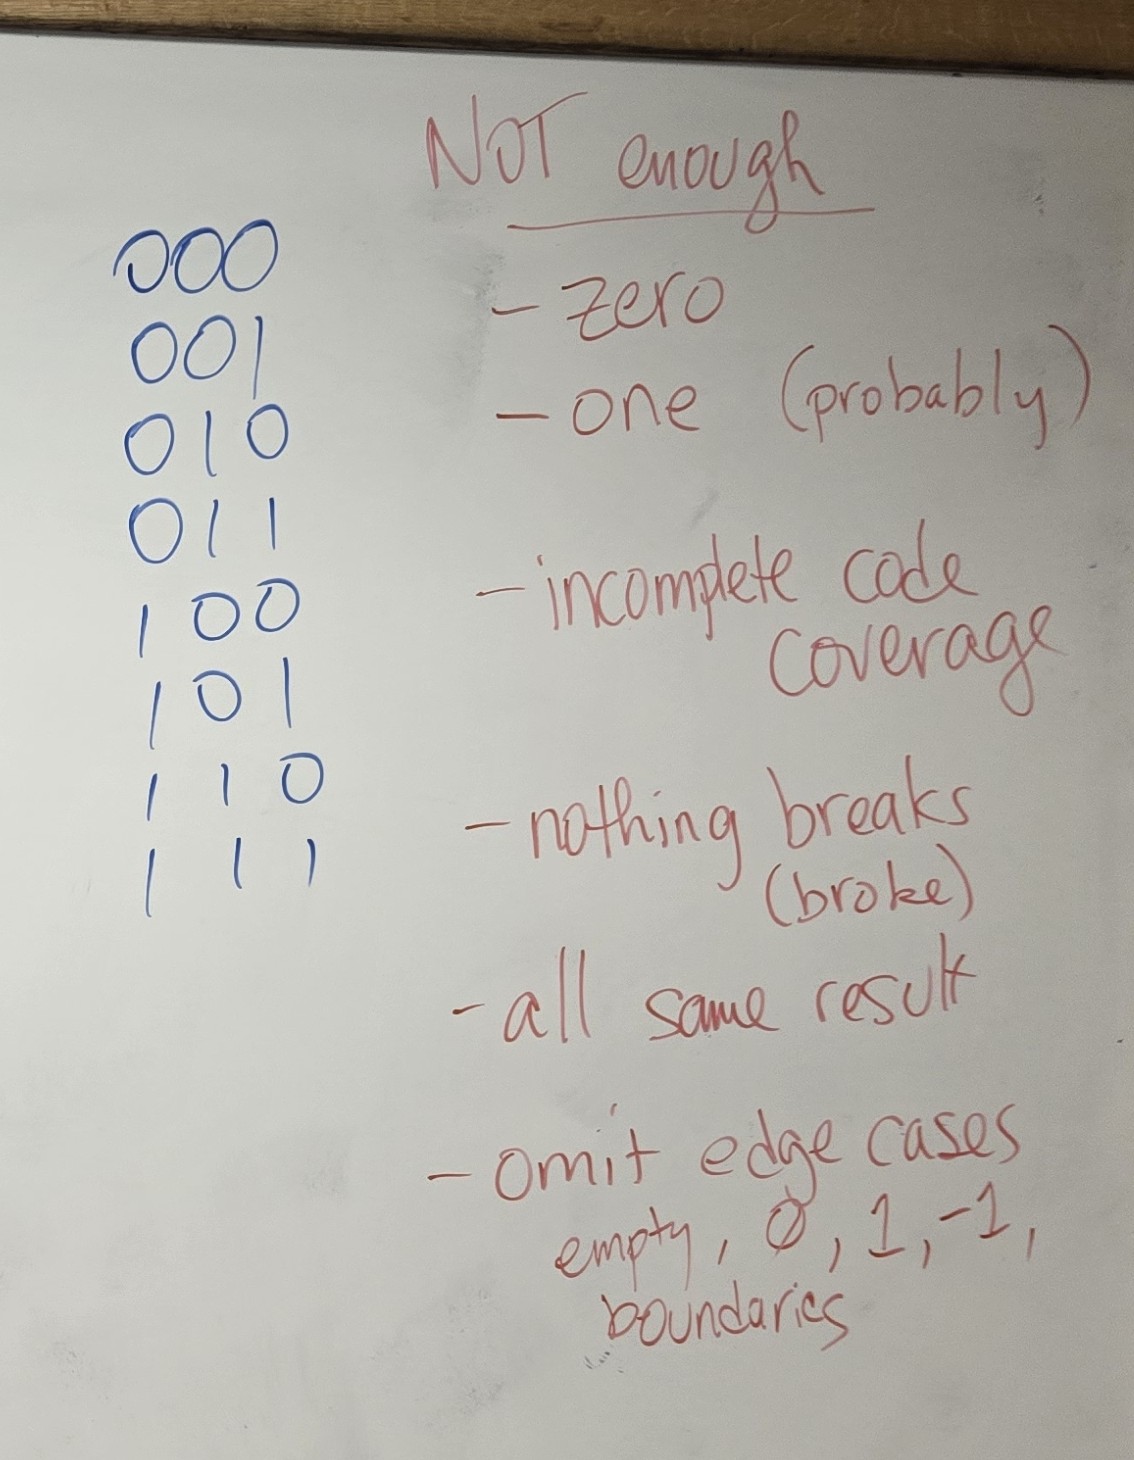 000
001
010
011
100
101
110
111
NOT enough
- zero
- one (probably)
- incomplete code
coverage
- nothing breaks
(broke)
- all same result
- omit edge cases
empty, 0, 1, -1,
boundaries